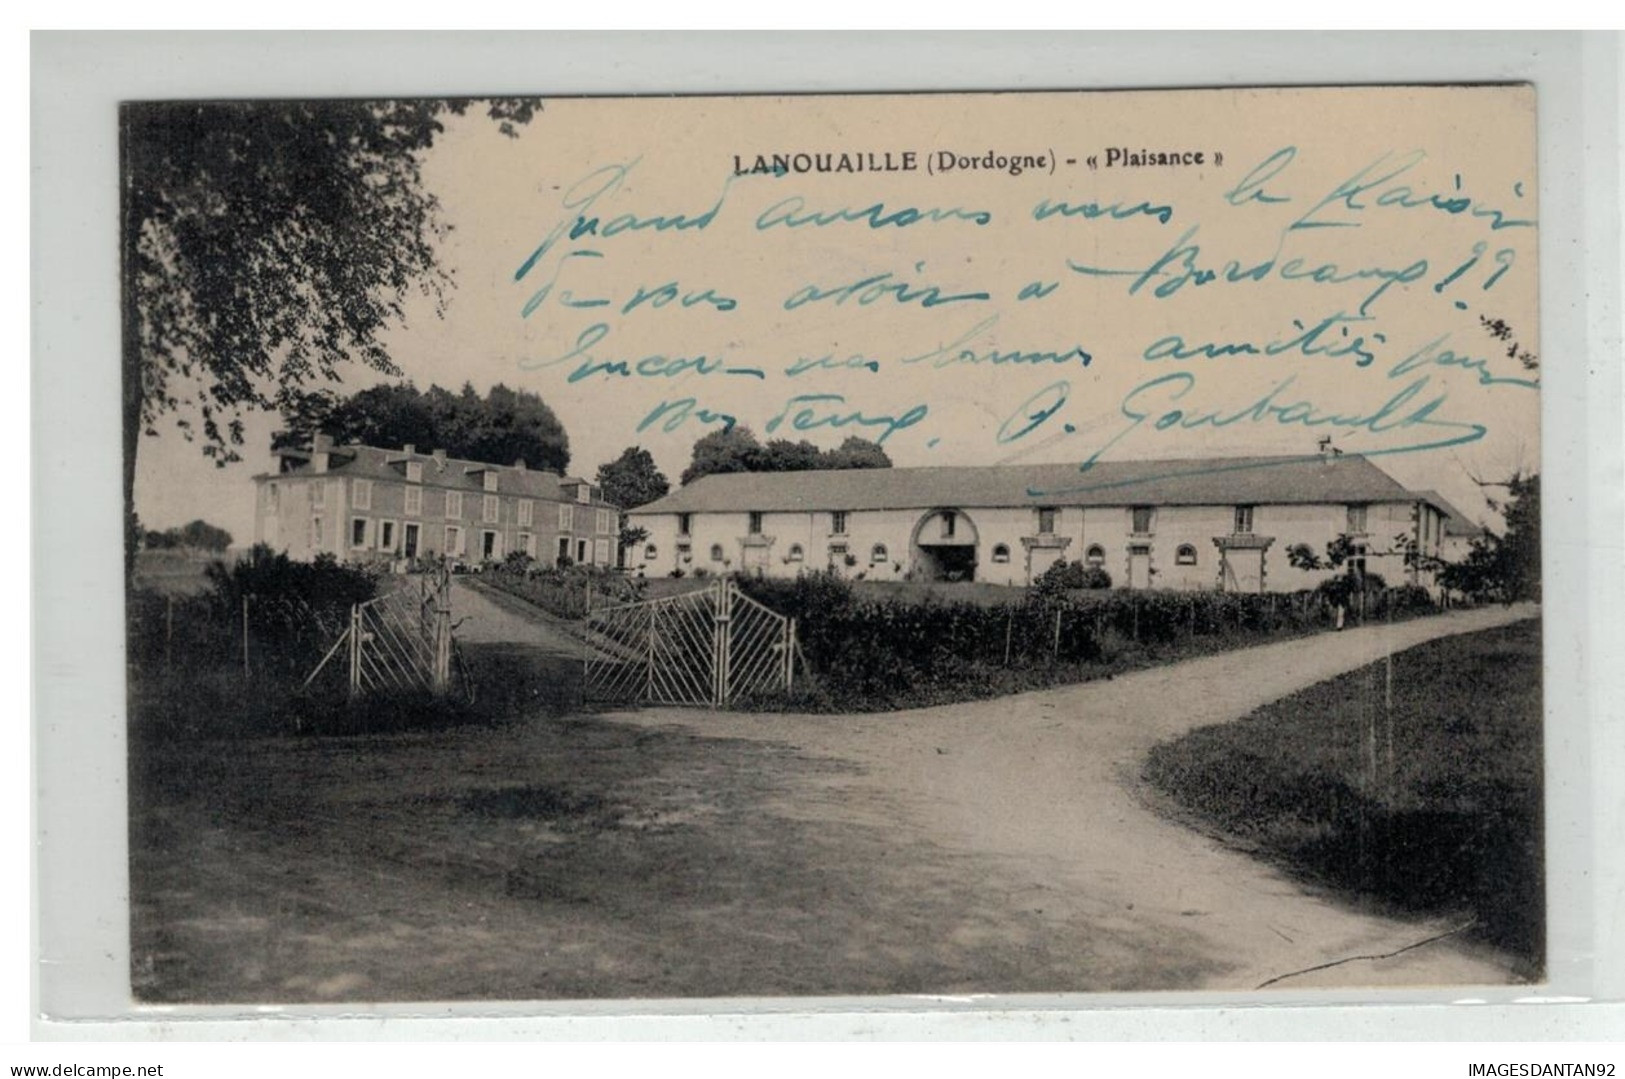 LANOUAILLE (Dordogne) - « Plaisance »
Quand aurons nous le Plaisir
de vous avoir à Bordeaux !??
Encore nos bonnes amitiés pour
vous deux. O. Goubault
www.delcampe.net
IMAGESDANTAN92